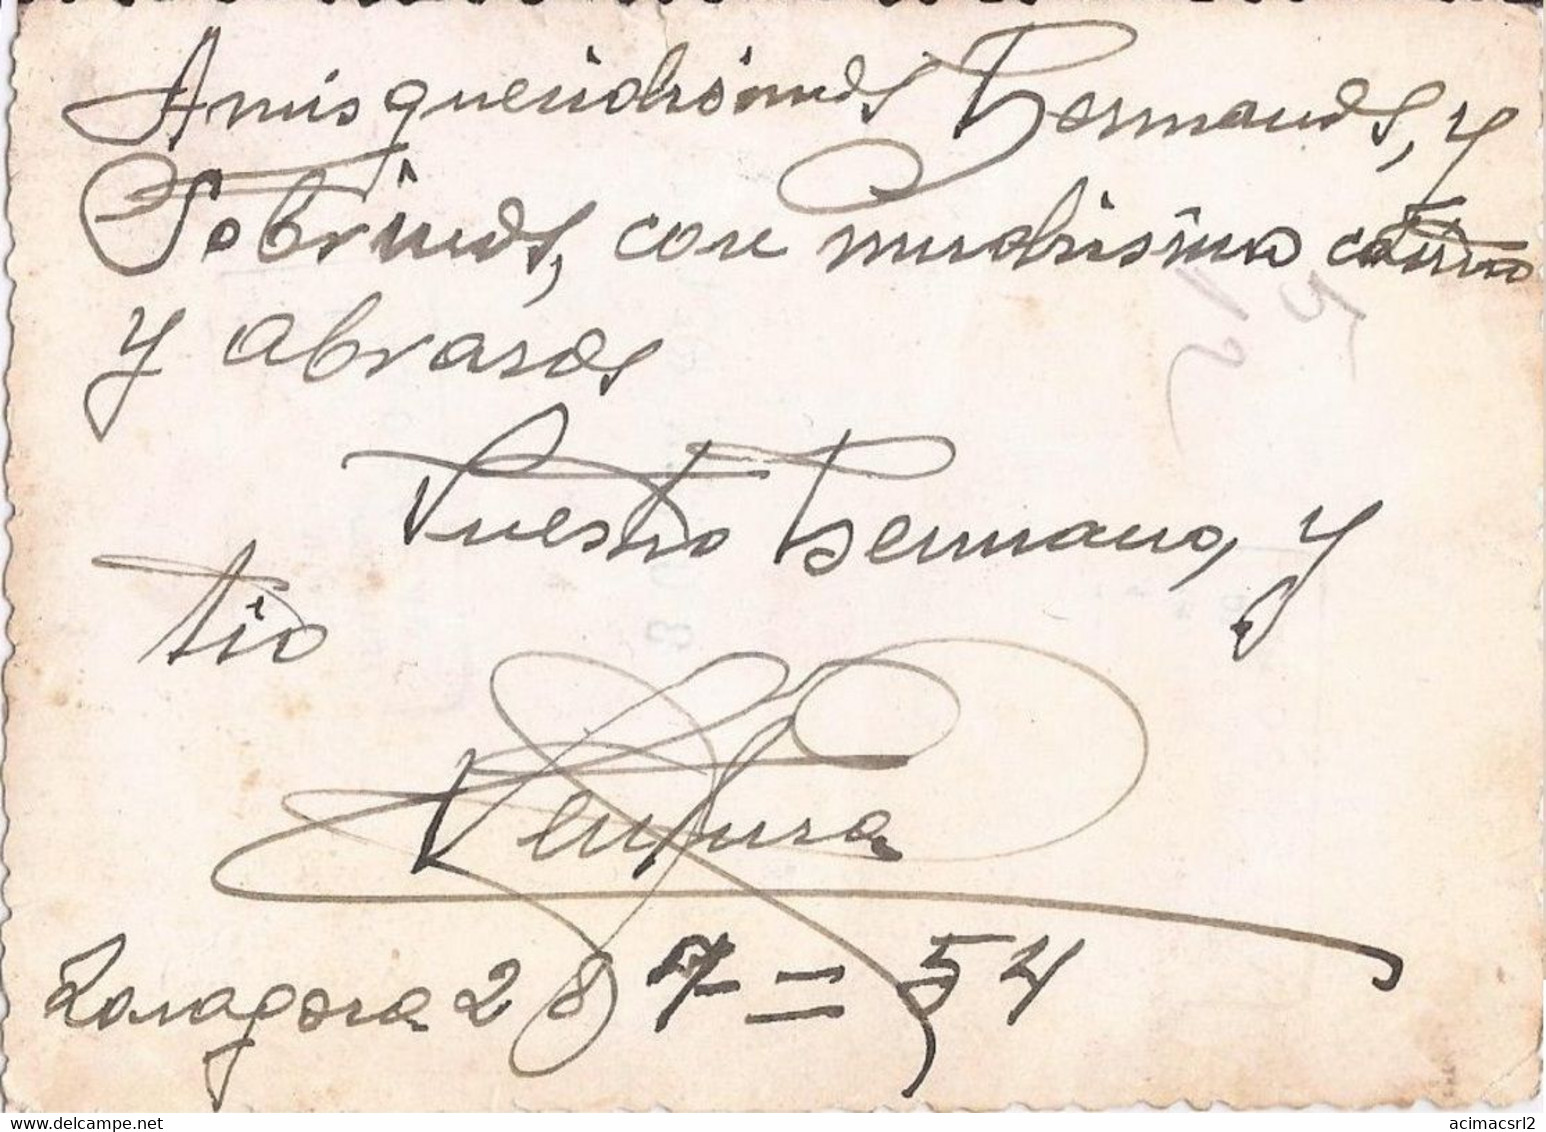 A mis queridisimos Hermanos, y
Sobrinos, con muchisimo cariño
y abrasos
Vuestro Hermano, y
tio
Ventura
Zaragosa 28 7 = 54
acimacsrl2